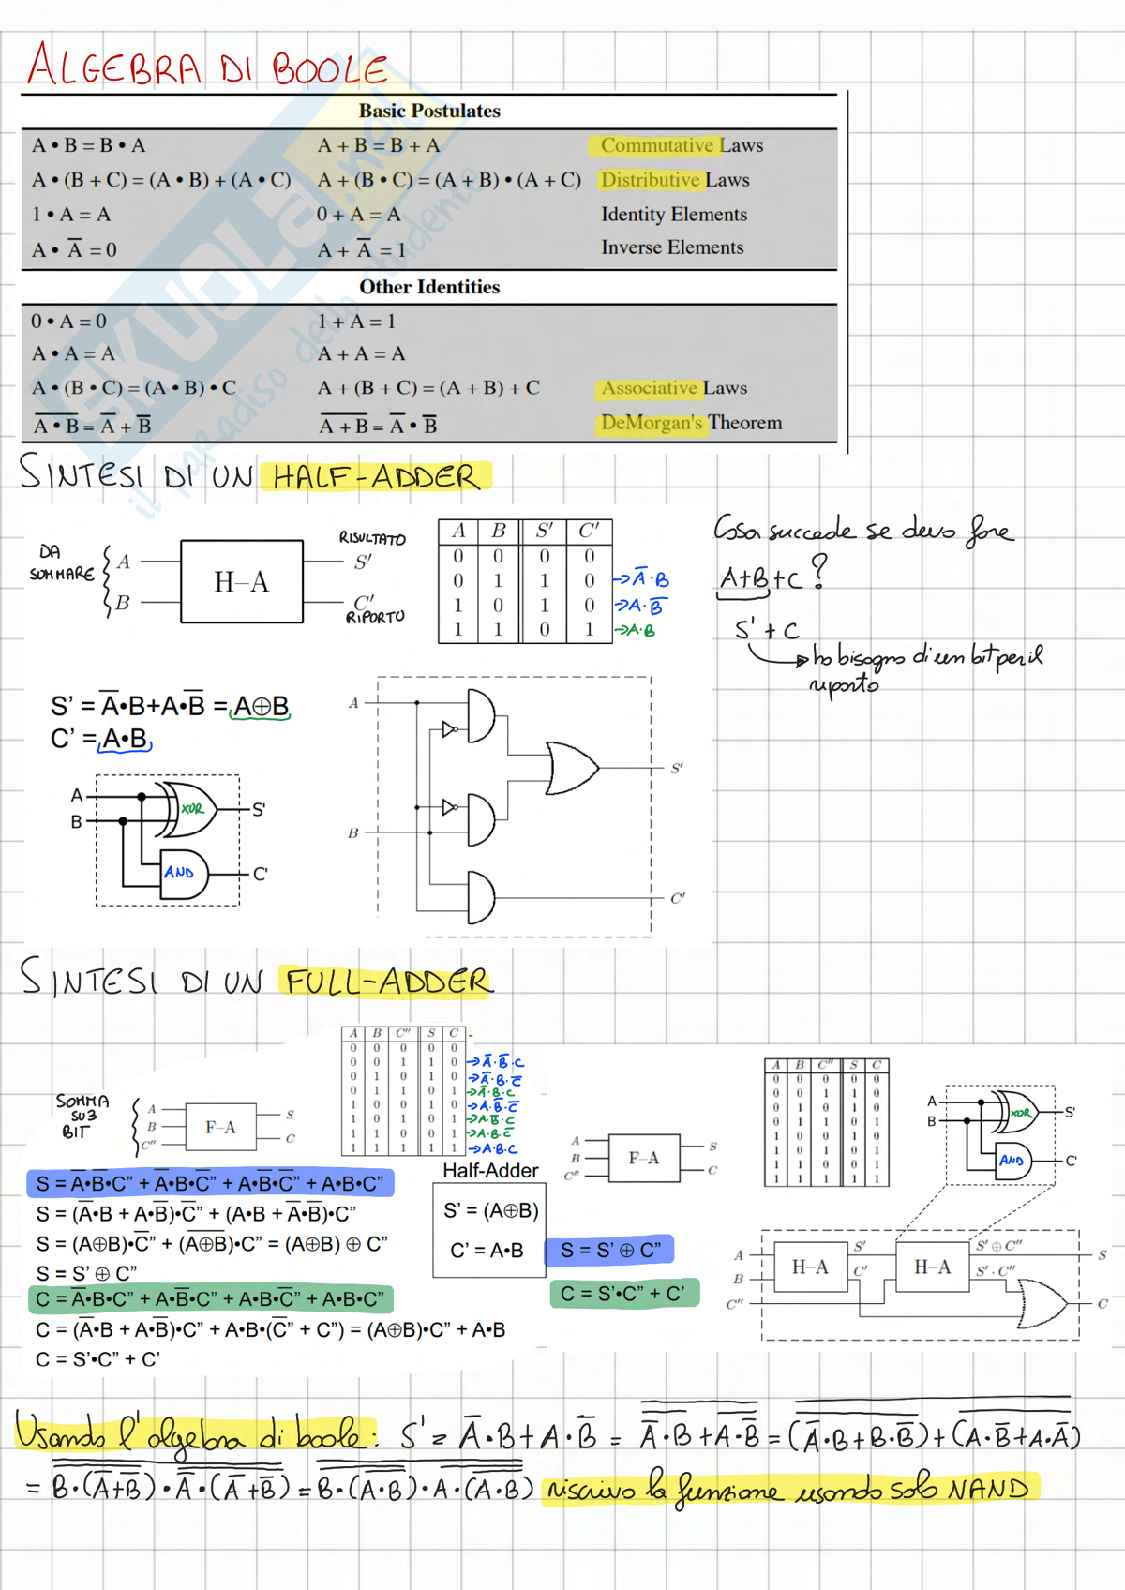 ALGEBRA DI BOOLE
Basic Postulates
A • B = B • A    A + B = B + A    Commutative Laws
A • (B + C) = (A • B) + (A • C)    A + (B • C) = (A + B) • (A + C)    Distributive Laws
1 • A = A    0 + A = A    Identity Elements
A • A̅ = 0    A + A̅ = 1    Inverse Elements
Other Identities
0 • A = 0    1 + A = 1
A • A = A    A + A = A
A • (B • C) = (A • B) • C    A + (B + C) = (A + B) + C    Associative Laws
A̅ ̅•̅ ̅B̅ = A̅ + B̅    A̅ ̅+̅ ̅B̅ = A̅ • B̅    DeMorgan's Theorem
SKUOLA.net
il paradiso dello studente
SINTESI DI UN HALF-ADDER
DA SOMMARE
A
B
H–A
RISULTATO
S'
C'
RIPORTO
A B S' C'
0 0 0 0
0 1 1 0 → A̅·B
1 0 1 0 → A·B̅
1 1 0 1 → A·B
Cosa succede se devo fare
A+B+C?
S'+C
ho bisogno di un bit per il
riporto
S' = A̅•B+A•B̅ = A⊕B
C' = A•B
A
B
XOR
AND
S'
C'
A
B
S'
C'
SINTESI DI UN FULL-ADDER
SOMMA
SU 3
BIT
A
B
C"
F–A
S
C
A B C" S C
0 0 0 0 0
0 0 1 1 0 → A̅·B̅·C
0 1 0 1 0 → A̅·B·C̅
0 1 1 0 1 → A̅·B·C
1 0 0 1 0 → A·B̅·C̅
1 0 1 0 1 → A·B̅·C
1 1 0 0 1 → A·B·C̅
1 1 1 1 1 → A·B·C
S = A̅•B̅•C" + A̅•B•C̅" + A•B̅•C̅" + A•B•C"
S = (A̅•B + A•B̅)•C̅" + (A•B + A̅•B̅)•C"
S = (A⊕B)•C̅" + (A̅⊕̅B̅)•C" = (A⊕B) ⊕ C"
S = S' ⊕ C"
C = A̅•B•C" + A•B̅•C" + A•B•C̅" + A•B•C"
C = (A̅•B + A•B̅)•C" + A•B•(C̅" + C") = (A⊕B)•C" + A•B
C = S'•C" + C'
Half-Adder
S' = (A⊕B)
C' = A•B
A
B
C"
F–A
S
C
S = S' ⊕ C"
C = S'•C" + C'
A B C" S C
0 0 0 0 0
0 0 1 1 0
0 1 0 1 0
0 1 1 0 1
1 0 0 1 0
1 0 1 0 1
1 1 0 0 1
1 1 1 1 1
A
B
XOR
AND
S'
C'
A
B
C"
H–A
S'
C'
H–A
S' ⊕ C"
S' · C"
S
C
Usando l'algebra di boole: S' = A̅·B+A·B̅ = A̅·B+A·B̅ = (A̅·B+B·B̅)+(A·B̅+A·A̅)
= B·(A̅+B̅)·A·(A̅+B̅) = B·(A·B)·A·(A·B) riscrivo la funzione usando solo NAND